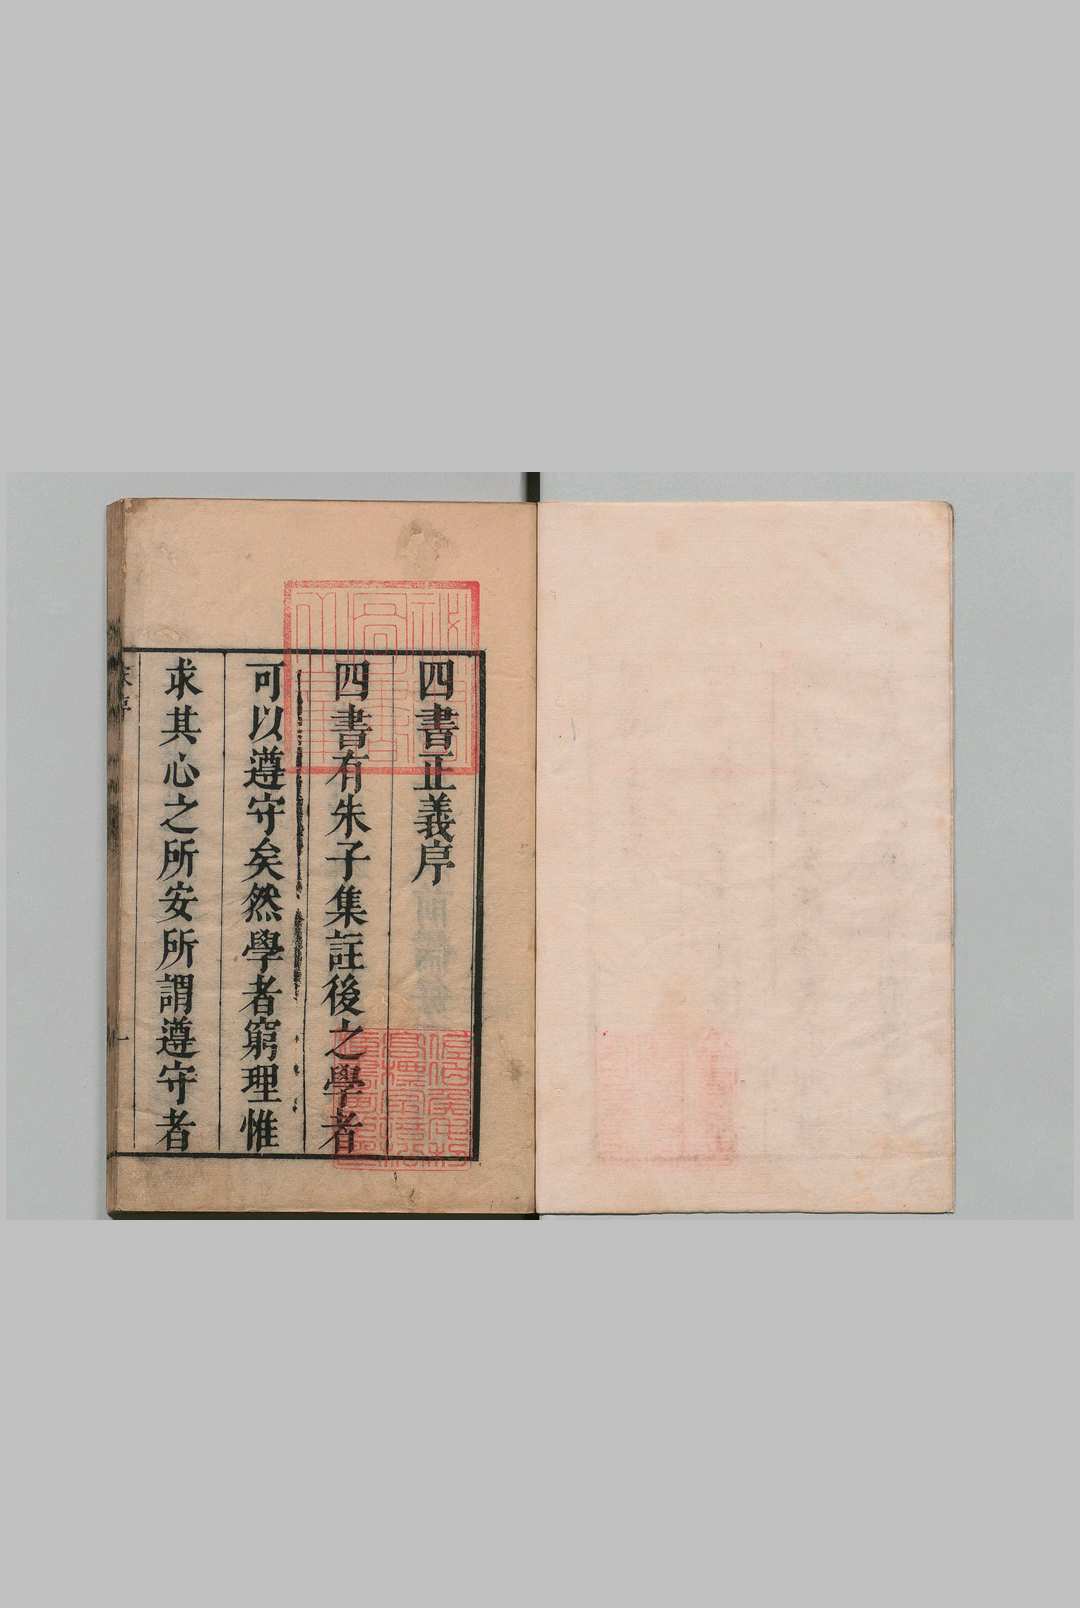 四書正義序
四書有朱子集註後之學者
可以遵守矣然學者窮理惟
求其心之所安所謂遵守者
一